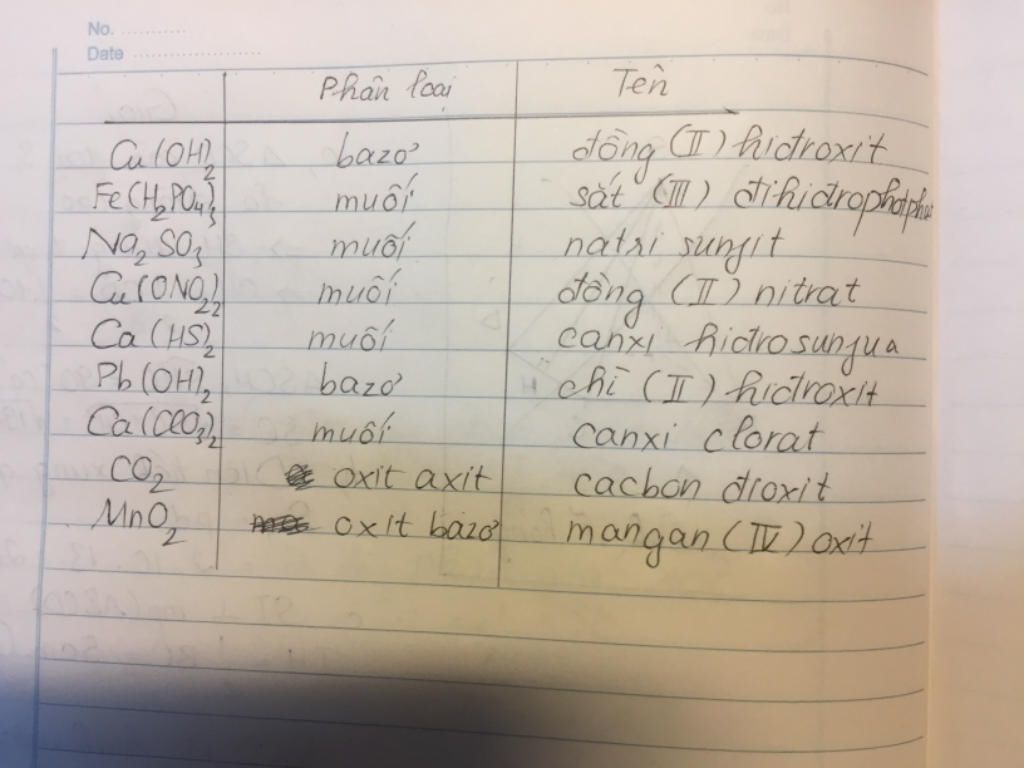 No. ............
Date ......................
Phân loại Tên
Cu(OH)₂ bazơ đồng (II) hiđroxit
Fe(H₂PO₄)₃ muối sắt (III) đihiđrophotphat
Na₂SO₃ muối natri sunfit
Cu(ONO₂)₂ muối đồng (II) nitrat
Ca(HS)₂ muối canxi hiđrosunfua
Pb(OH)₂ bazơ chì (II) hiđroxit
Ca(ClO₃)₂ muối canxi clorat
CO₂ oxit axit cacbon đioxit
MnO₂ oxit bazơ mangan (IV) oxit